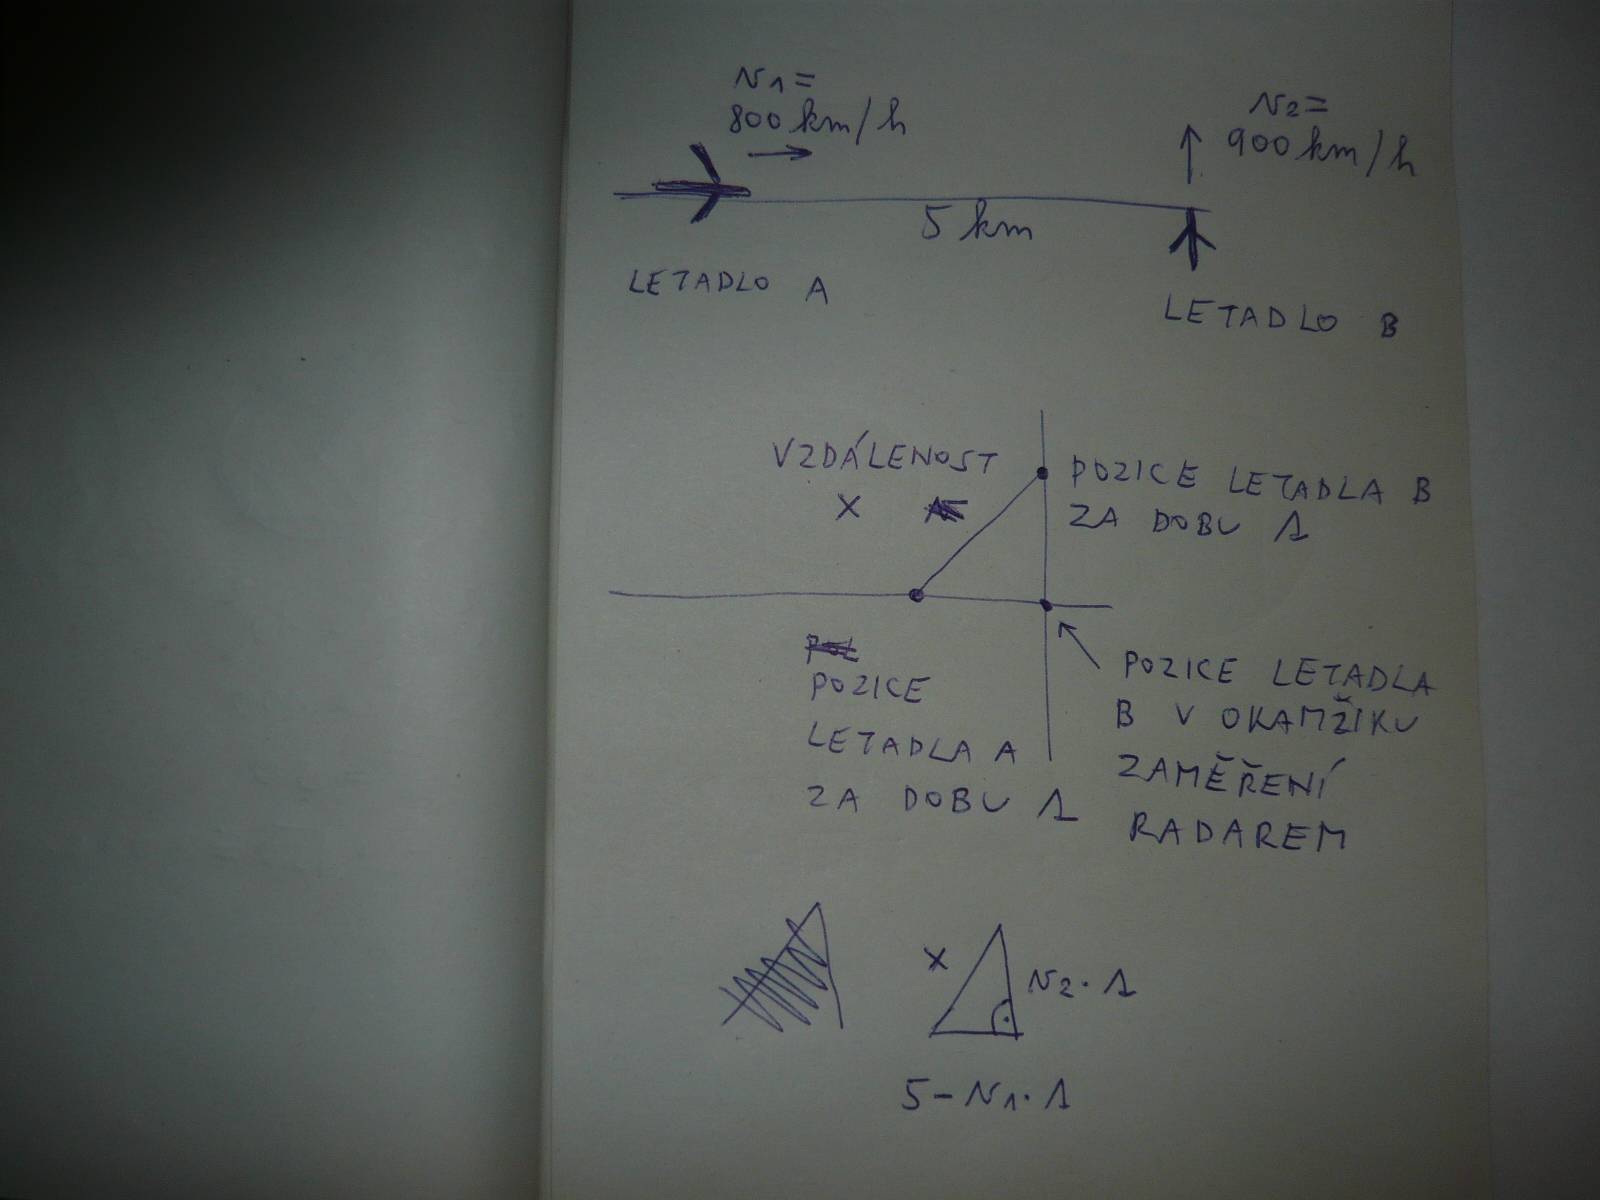 v1=
800 km/h
v2=
900 km/h
5 km
LETADLO A
LETADLO B
VZDÁLENOST
X
POZICE LETADLA B
ZA DOBU 1
POZICE
LETADLA A
ZA DOBU 1
POZICE LETADLA
B V OKAMŽIKU
ZAMĚŘENÍ
RADAREM
X
v2·1
5-v1·1